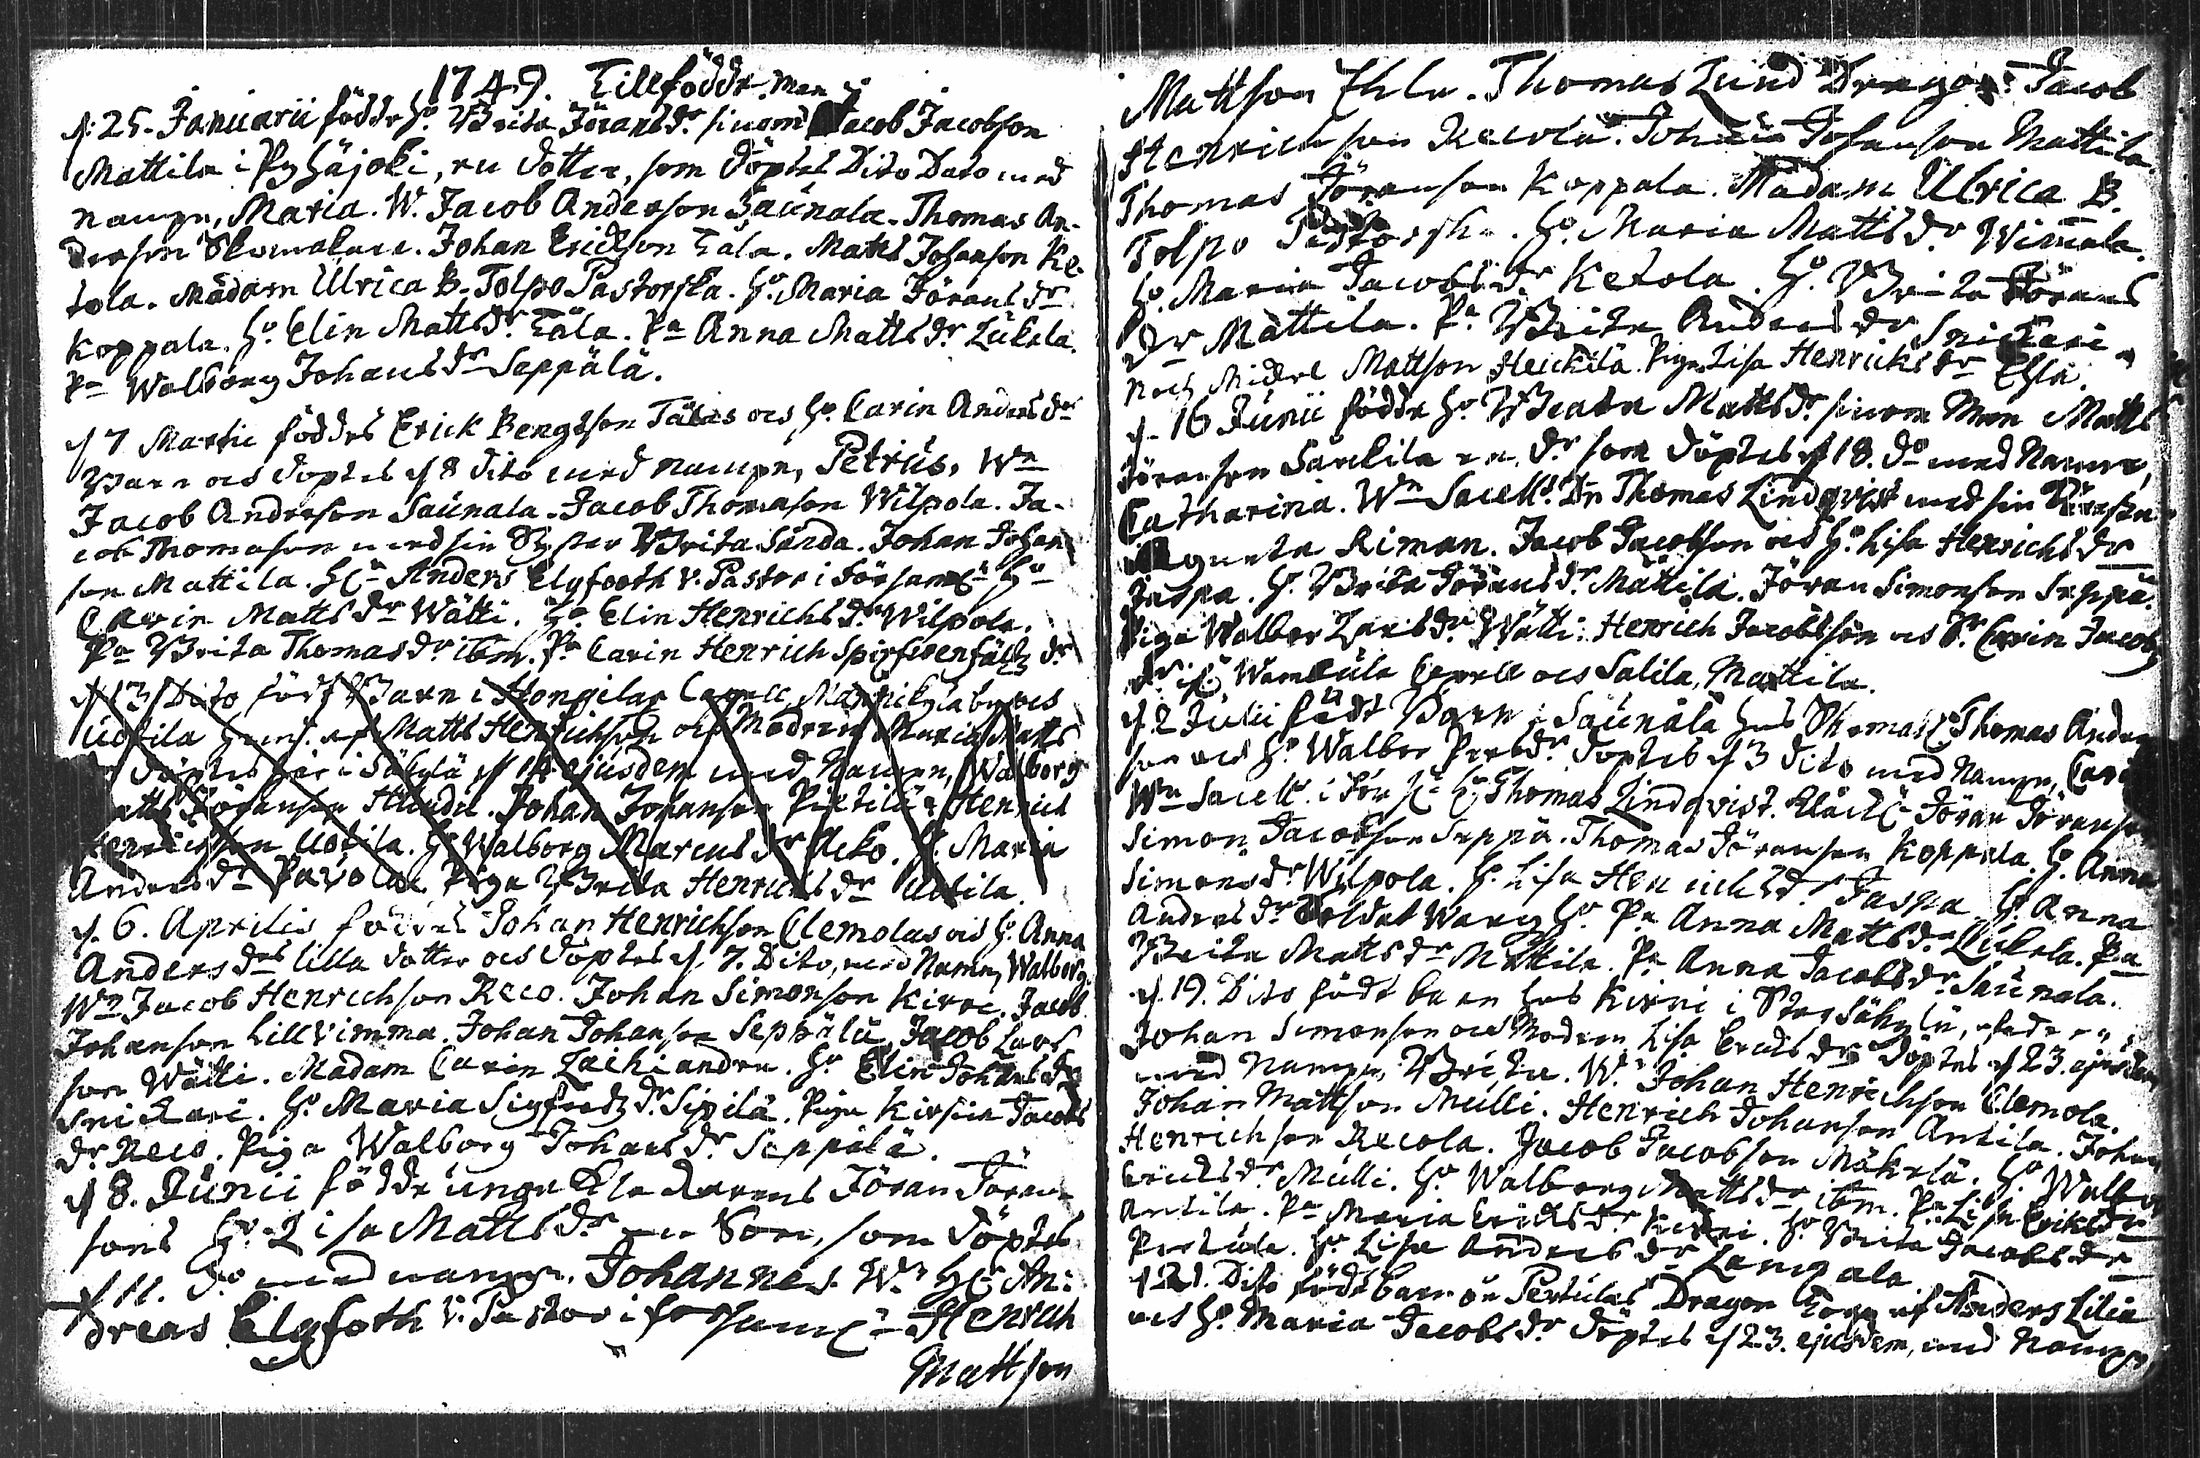 1749. Tillfödde
d: 25. Januarii födde H:o Brita Jöransdr sinom Man Jacob Jacobson
Mattila i Pyhäjoki, en dotter, som döptes Dito Dato med
nampn, Maria. W. Jacob Anderson Saunala. Thomas An-
derson Skomakare. Johan Erickson Täla. Matts Johanson Ke-
tola. Madam Ulrica B. Tolpo Pastorska. Ho. Maria Jöransdr
Koppala. Ho Elin Mattsdr Täla. Pa Anna Mattsdr Lukala.
Pa Walborg Johansdr Seppälä.
d 7 Martii föddes Erick Bengtson Tälas och Ho. Carin Andersdr
Barn och döptes d 8 dito med nampn, Petrus, Wn
Jacob Anderson Saunala. Jacob Thomason Wilpola. Ja-
cob Thomason med sin Syster Brita Sarda. Johan Johan
son Mattila. Anders Elgfooth v. Pastor i Församl: Ho
Carin Mattsdr Wätti. Ho. Elin Henrichsdr Wilpola.
Pa Brita Thomasdr ibm. Pa Carin Henrich dr
d 13 Dito födt Barn i Hongilax Capell, by och
Uotila af Matts Henrichson och Modren Maria Matts
döptes här i Säkylä d 14 ejusdem med Nampn, Walborg
Johanson Johan Johanson Pietilä. Henrich
Henrichson Uotila. Ho Walborg Marcusdr Acko. H. Maria
Andersdr Pavola. Piga Brita Henrichsdr Uotila.
d. 6. Aprilis föddes Johan Henrichson Clemolas och H. Anna
Andersdrs lilla dotter och döptes d. 7. Dito, med Namn, Walborg.
Wn Jacob Henrichson Reco. Johan Simonson Kirre. Jacob
Johanson Lillvimma. Johan Johanson Seppälä, Jacob Lars
son Wätti. Madam Carin Zachiandra. Ho Elin Johansdr
Snickari. Ho Maria Sigfredzdr Sipilä. Piga Kirstin Jacobs
dr Reco. Piga Walborg Johansdr Seppälä.
d 8. Junii födde unge Klockarens Jöran Jöran-
sons Ho. Lisa Mattsdr en Son, som döptes
d 11. do med nampn. Johannes. Wn An:
dreas Elgfoth v. Pastor i församl: Henrich
Mattson
Mattson Ehla. Thomas Lund Dragon: Jacob
Henrichson Recola. Johan Johanson Mattila.
Thomas Jöranson Koppala. Madam Ulrica B.
Tolpo Pastorska. Ho. Maria Mattsdr Wimala.
Ho. Maria Jacobsdr Ketola. Ho. Brita Jörans
dr Mattila. Pa Brita Andersdr Snickari
Noch Michel Mattson Heickilä. Piga Lisa Henricksdr Ehla.
d. 16 Junii födde Ho Beata Mattsdr sinom Man Matts
Jöranson en dr som döptes d 18. do med Nampn,
Catharina. Wn Sacell. Dn Thomas Lindqvist med sin
Agneta Riman. Jacob Jacobson och Ho. Lisa Henrichsdr
Jaspa. H. Brita Jöransdr Mattila. Jöran Simonson Seppä.
Piga Walbor Larsdr Wätti. Henrich Jacobsson och H. Carin Jacobs
dr Capell och Salila, Mattila.
d 2 Julii födt Barn i Saunala hos Thomas Ander
son och Ho Walbor dr döptes d 3 dito med Nampn,
Wn Sacell. i för Thomas Lindqvist. Jöran Jöranson
Simon Jacobson Seppä. Thomas Jöranson Koppala. H. Anna
Simonsdr Wilpola. H. Lisa Henrichsdr Jaspa. H. Anna
Andersdr Soldat Pa Anna Mattsdr Lukala. Pa
Brita Mattsdr Mattila. Pa Anna Jacobsdr Saunala.
d. 19. Dito födt barn hos Kirri i Stor Säkylä,
Johan Simonson och Modren Lisa dr döptes d 23. ejusdem
med Nampn, Brita. Wn Johan Henrichson Clemola.
Johan Mattson Mulli. Henrich Johanson Antila. Johan
Henrichson Recola. Jacob Jacobson Mäkelä. Ho Walbor
Ericksdr Mulli. Ho Walborg Mattsdr ibm. Pa Lisa Eriksdr
Antila. Pa Maria Ericksdr Kirri. Ho Brita Jacobsdr
Pertula. Ho Lisa Andersdr Lampala
d 21. Dito födt barn på Pertulas Dragon af Anders Lilia
och Ho Maria Jacobsdr döptes d 23. ejusdem, med Nampn